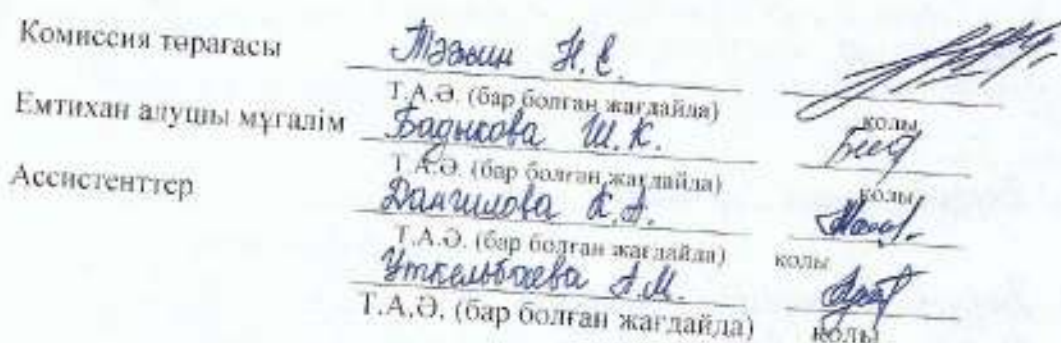 Комиссия төрағасы Тәжин Н. Е.
Т.А.Ә. (бар болған жағдайда) қолы
Емтихан алушы мұғалім Бадыкова Ш. К.
Т.А.Ә. (бар болған жағдайда) қолы
Ассистенттер Данчилова К. А.
Т.А.Ә. (бар болған жағдайда) қолы
Уткельбаева А. М.
Т.А.Ә. (бар болған жағдайда) қолы